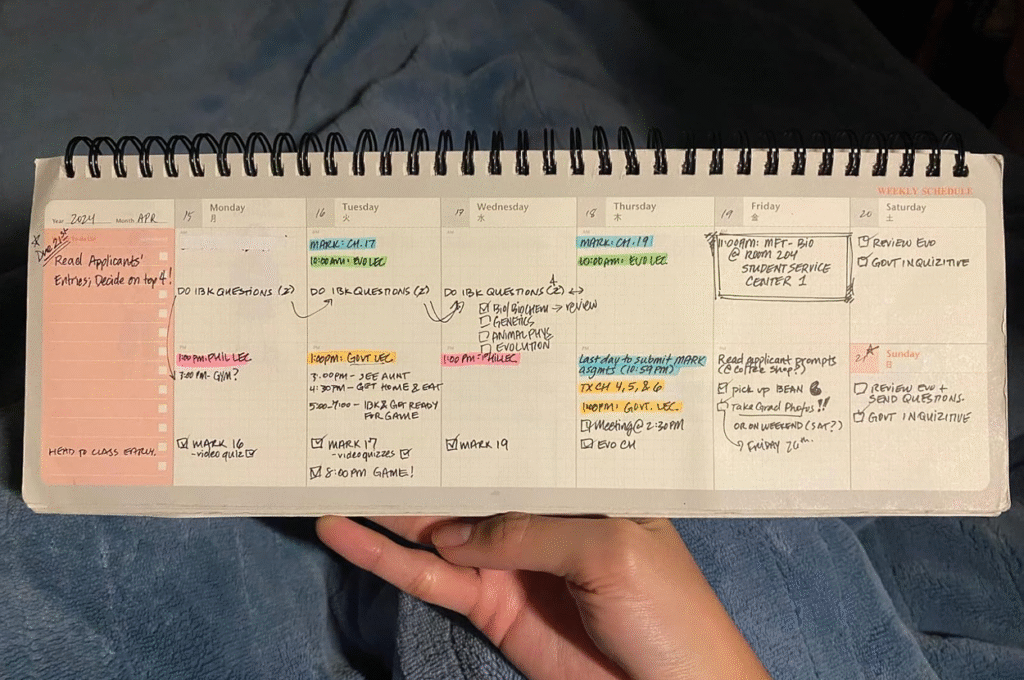 WEEKLY SCHEDULE
Year 2024 Month APR
* Due 21st
To do List
Read Applicants'
Entries; Decide on top 4!
HEAD TO CLASS EARLY.
15 Monday
月
DO IBK QUESTIONS (2)
1:00PM: PHIL LEC
3:00PM - GYM?
MARK 16
- video quiz
16 Tuesday
火
MARK: CH. 17
10:00AM: EVO LEC
DO IBK QUESTIONS (2)
1:00PM: GOVT LEC
3:00PM - SEE AUNT
4:30PM - GET HOME & EAT
5:00-7:00 - IBK & GET READY
FOR GAME
MARK 17
- video quizzes
8:00PM GAME!
17 Wednesday
水
DO IBK QUESTIONS (2)
4
BIO/BIOCHEM → review
GENETICS
ANIMAL PHYS
EVOLUTION
1:00PM: PHIL LEC
MARK 19
18 Thursday
木
MARK: CH. 19
10:00AM: EVO LEC
Last day to submit MARK
asgmts (10:59PM)
TX CH 4, 5, & 6
1:00PM: GOVT. LEC.
Meeting @ 2:30PM
EVO CH
19 Friday
金
11:00AM: MFT - BIO
@ ROOM 204
STUDENT SERVICE
CENTER 1
Read applicant prompts
(@ Coffee Shop?)
pick up BEAN
Take Grad Photos!!
OR ON WEEKEND (SAT?)
→ FRIDAY 26th.
20 Saturday
土
REVIEW EVO
GOVT INQUIZITIVE
21 * Sunday
日
REVIEW EVO +
SEND QUESTIONS.
GOVT INQUIZITIVE